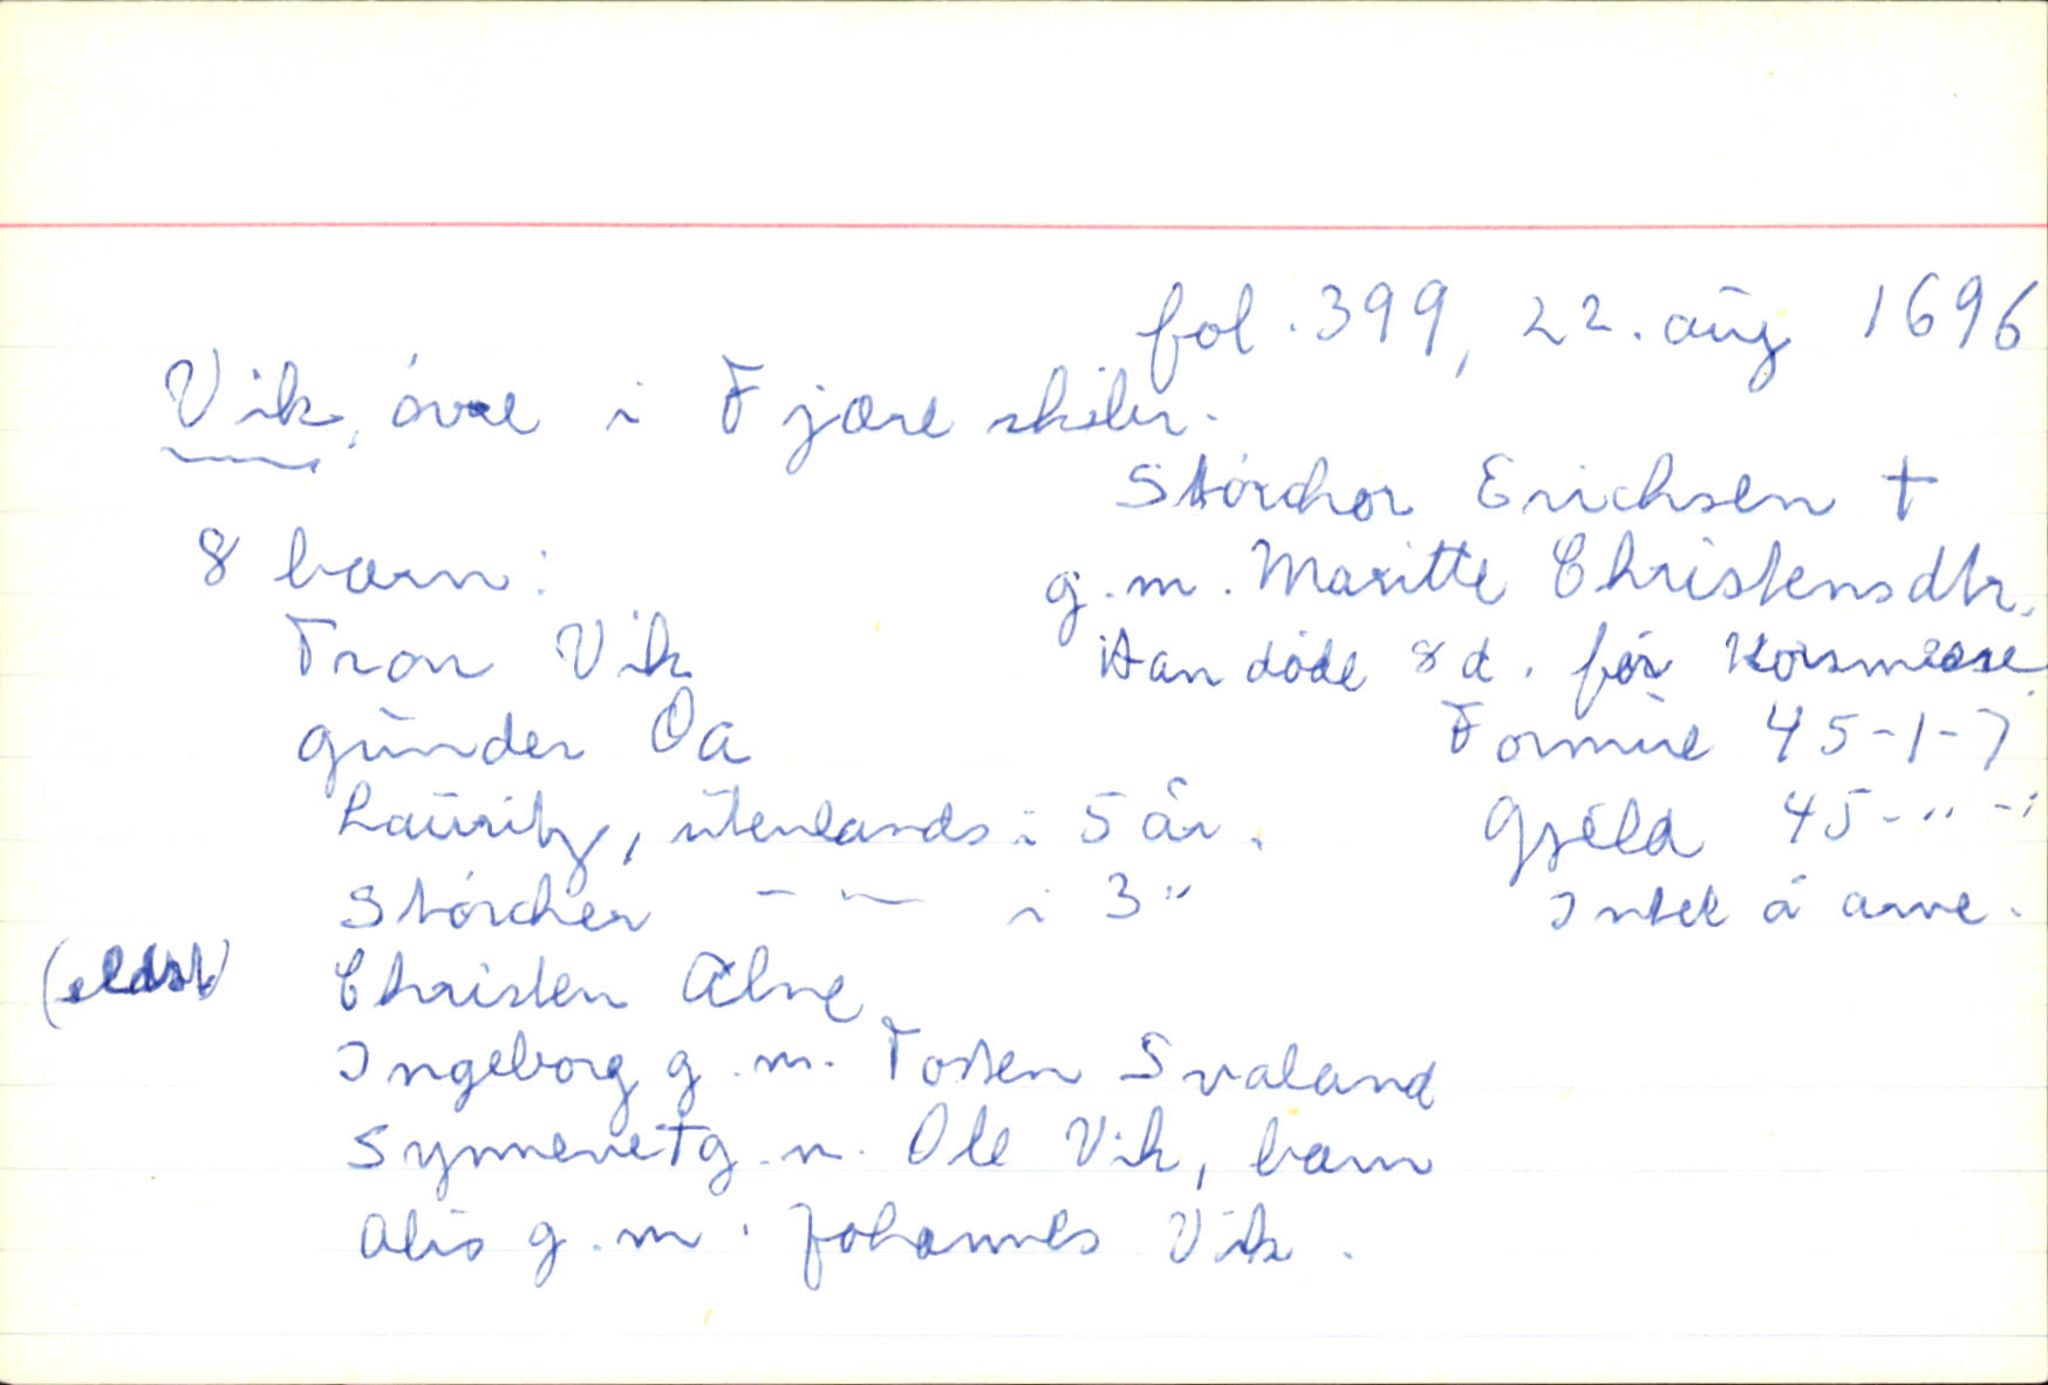 fol. 399, 22. aug 1696
Vik, övre i Fjære skibr.
Störchor Erichsen †
8 barn:
g.m. Maritte Christensdtr.
Tron Vik
Han döde 8 d. för Korsmesse
Gunder Oa
Formue 45-1-7
Lauritz, utenlands i 5 år.
Gjeld 45-"-"
Störcher - — i 3 "
Intet å arve.
(eldst) Christen Alve
Ingeborg g.m. Tosten Svaland
Synneve † g.m. Ole Vik, barn
Alis g.m. Johannes Vik.